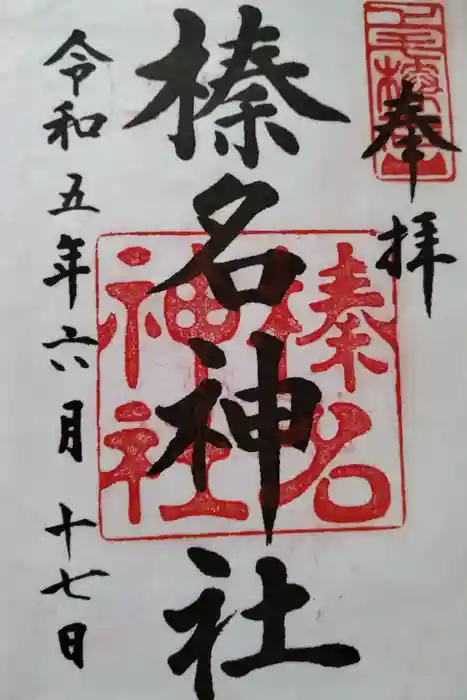 奉拝
榛名神社
榛名神社
令和五年六月十七日